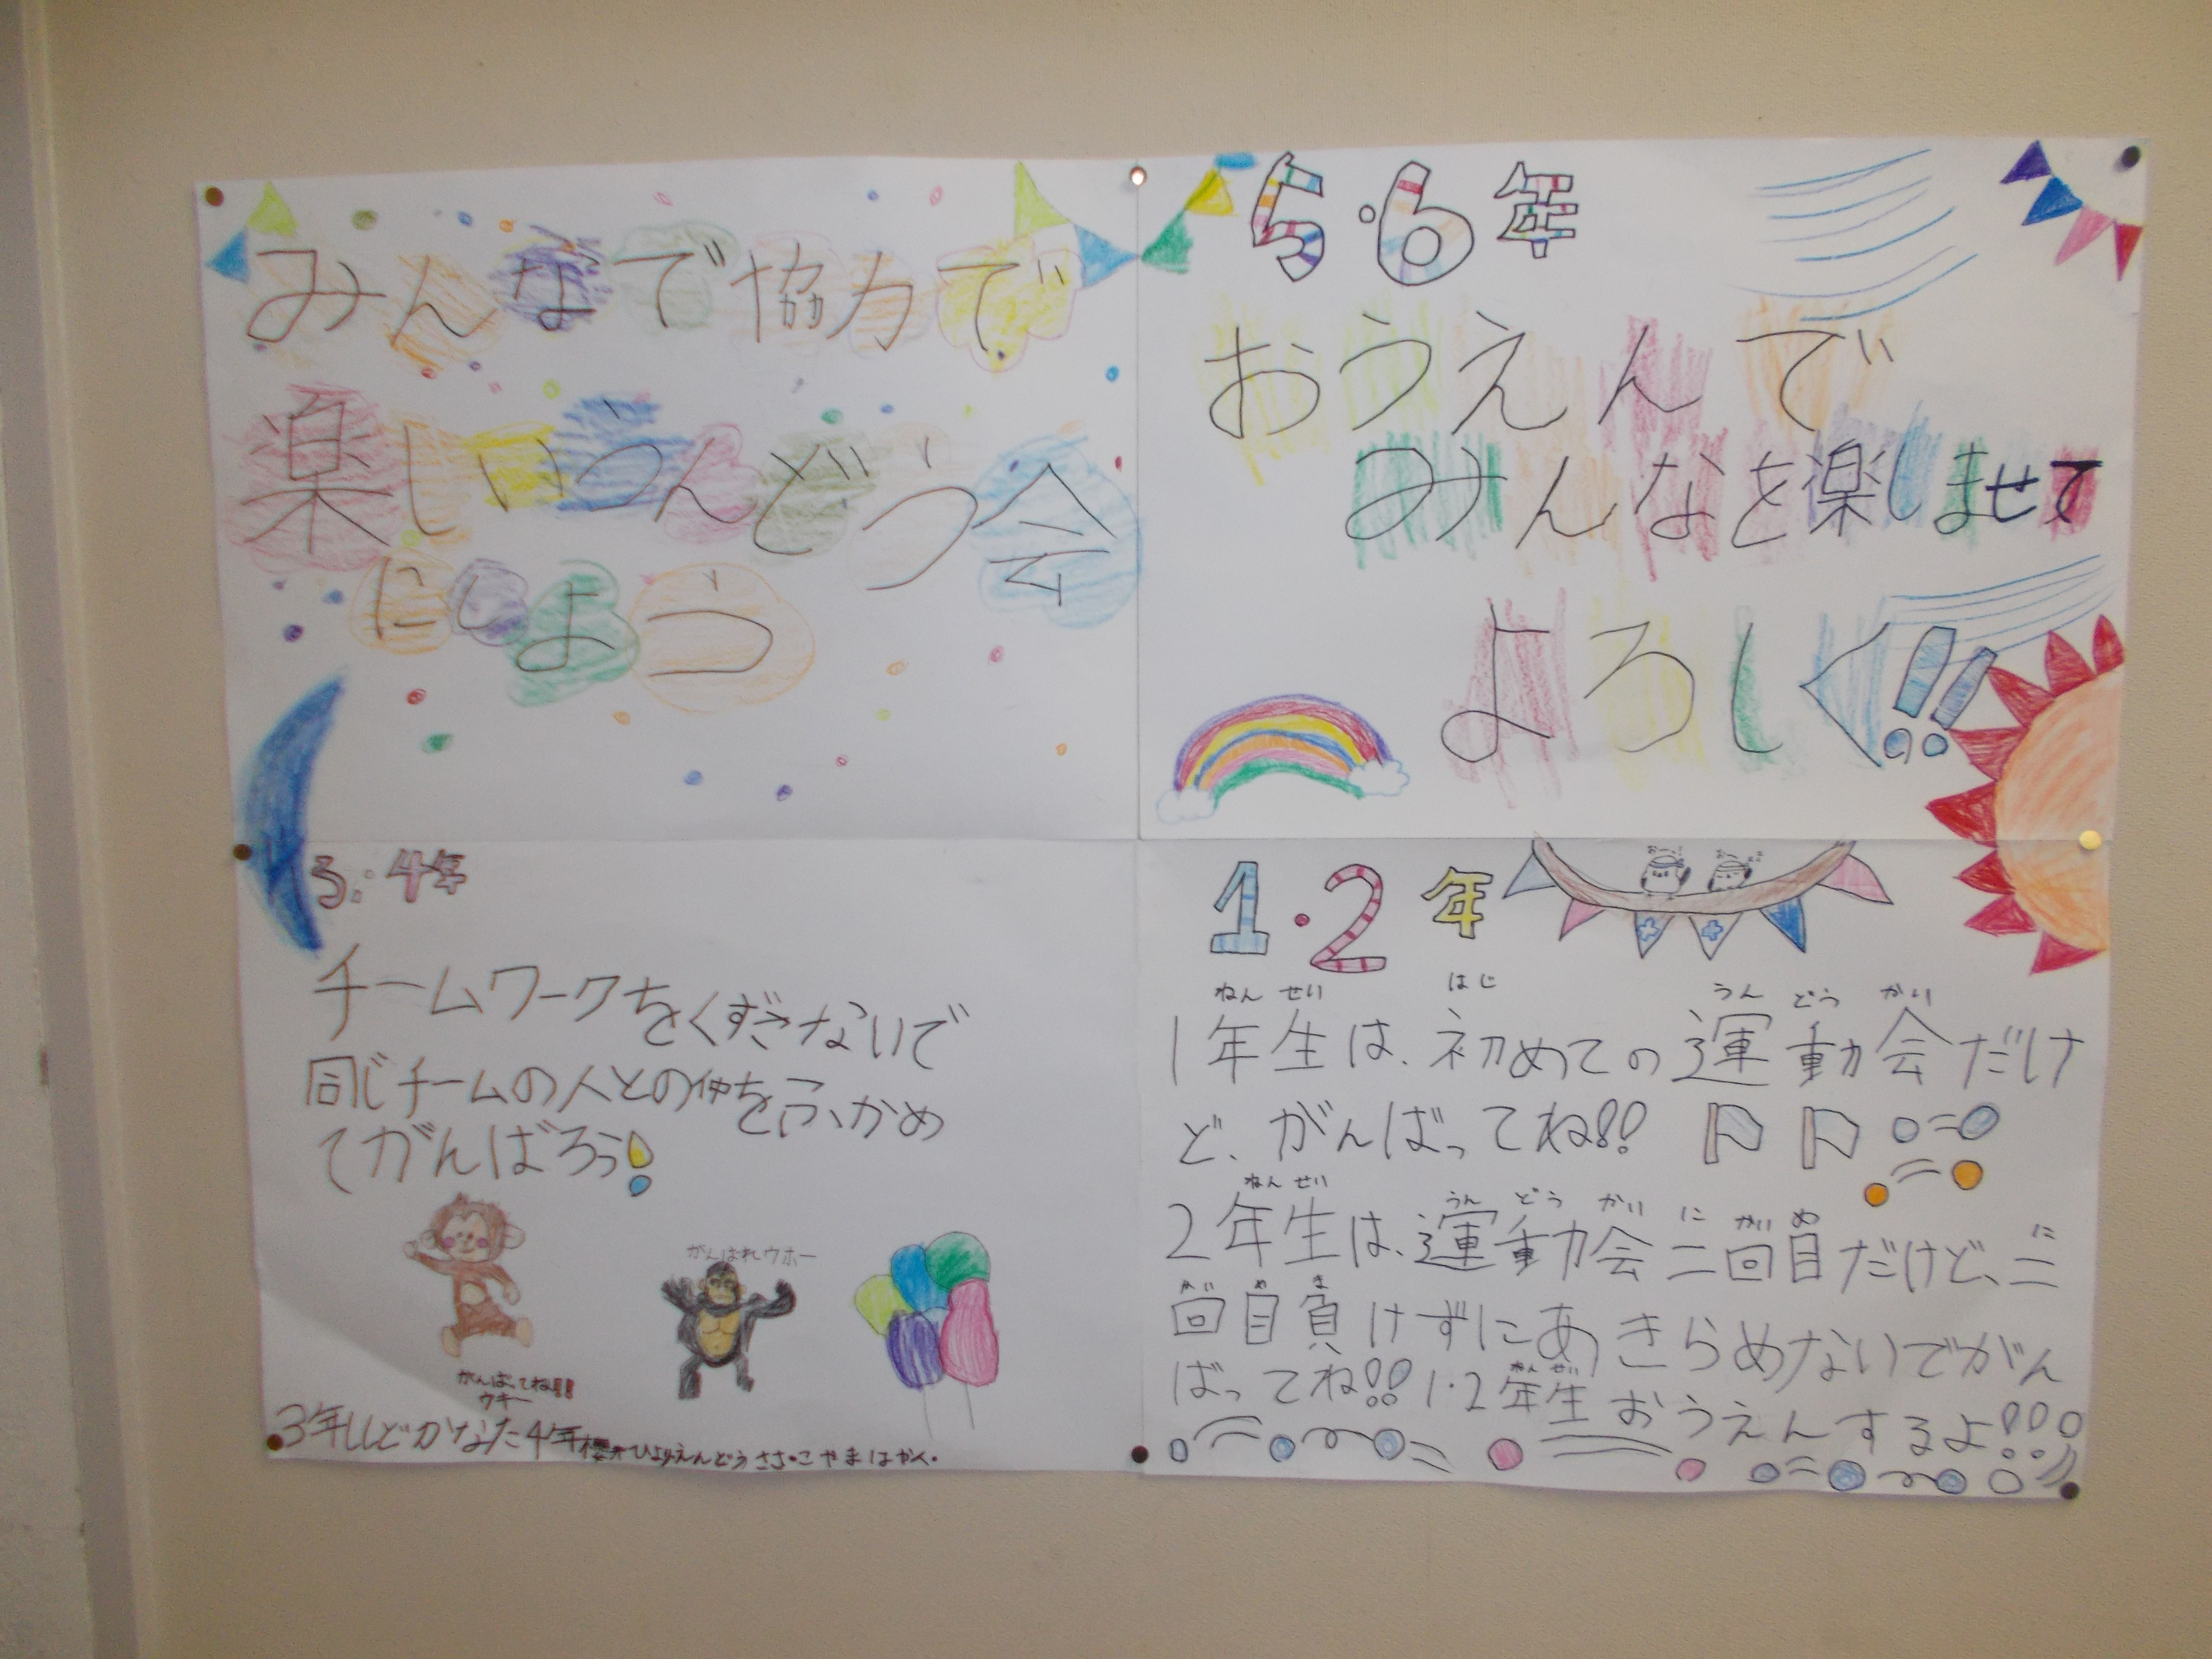 みんなで協力で
楽しいうんどう会
にしよう
5・6年
おうえんで
みんなを楽しませて
よろしく!!
3・4年
チームワークをくずさないで
同じチームの人との仲をふかめ
てがんばろう!
がんばれウホー
がんばってね!!
ウキー
3年ししどかなた4年
ひより えんどう ささ・こやまはがく・
1・2年
おー! おー!
ねん せい はじ うん どう かい
1年生は、初めての運動会だけ
ど、がんばってね!!
ねん せい うん どう かい に かい め に
2年生は、運動会二回目だけど、二
かい め ま
回目負けずにあきらめないでがん
ねん せい
ばってね!! 1・2年生おうえんするよ!!!